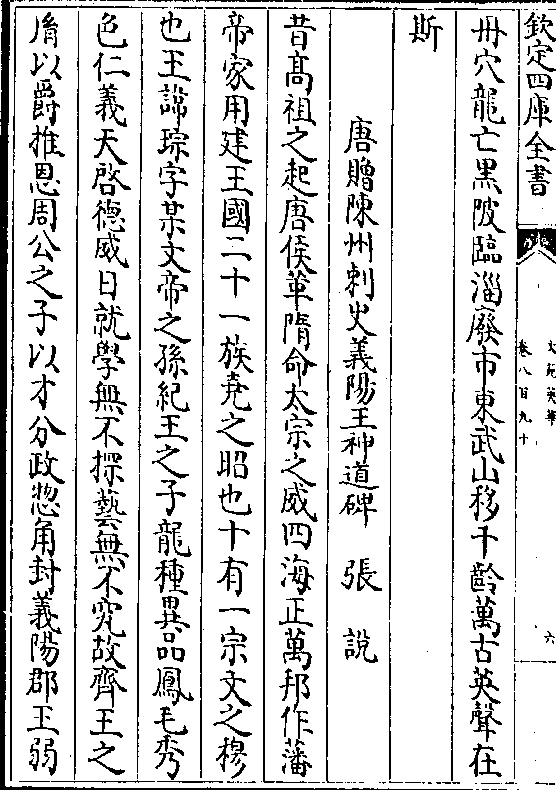 欽定四庫全書
文苑英華
卷八百九十
六
丹穴龍亡黑陂臨淄廢市東武山移千齡萬古英聲在
斯
唐贈陳州刺史義陽王神道碑 張說
昔髙祖之起唐侯革隋命太宗之威四海正萬邦作藩
帝家用建王國二十一族堯之昭也十有一宗文之穆
也王諱琮字某文帝之孫紀王之子龍種異品鳳毛秀
色仁義天啓德威日就學無不探藝無不究故齊王之
𦙍以爵推恩周公之子以才分政揔角封義陽郡王弱